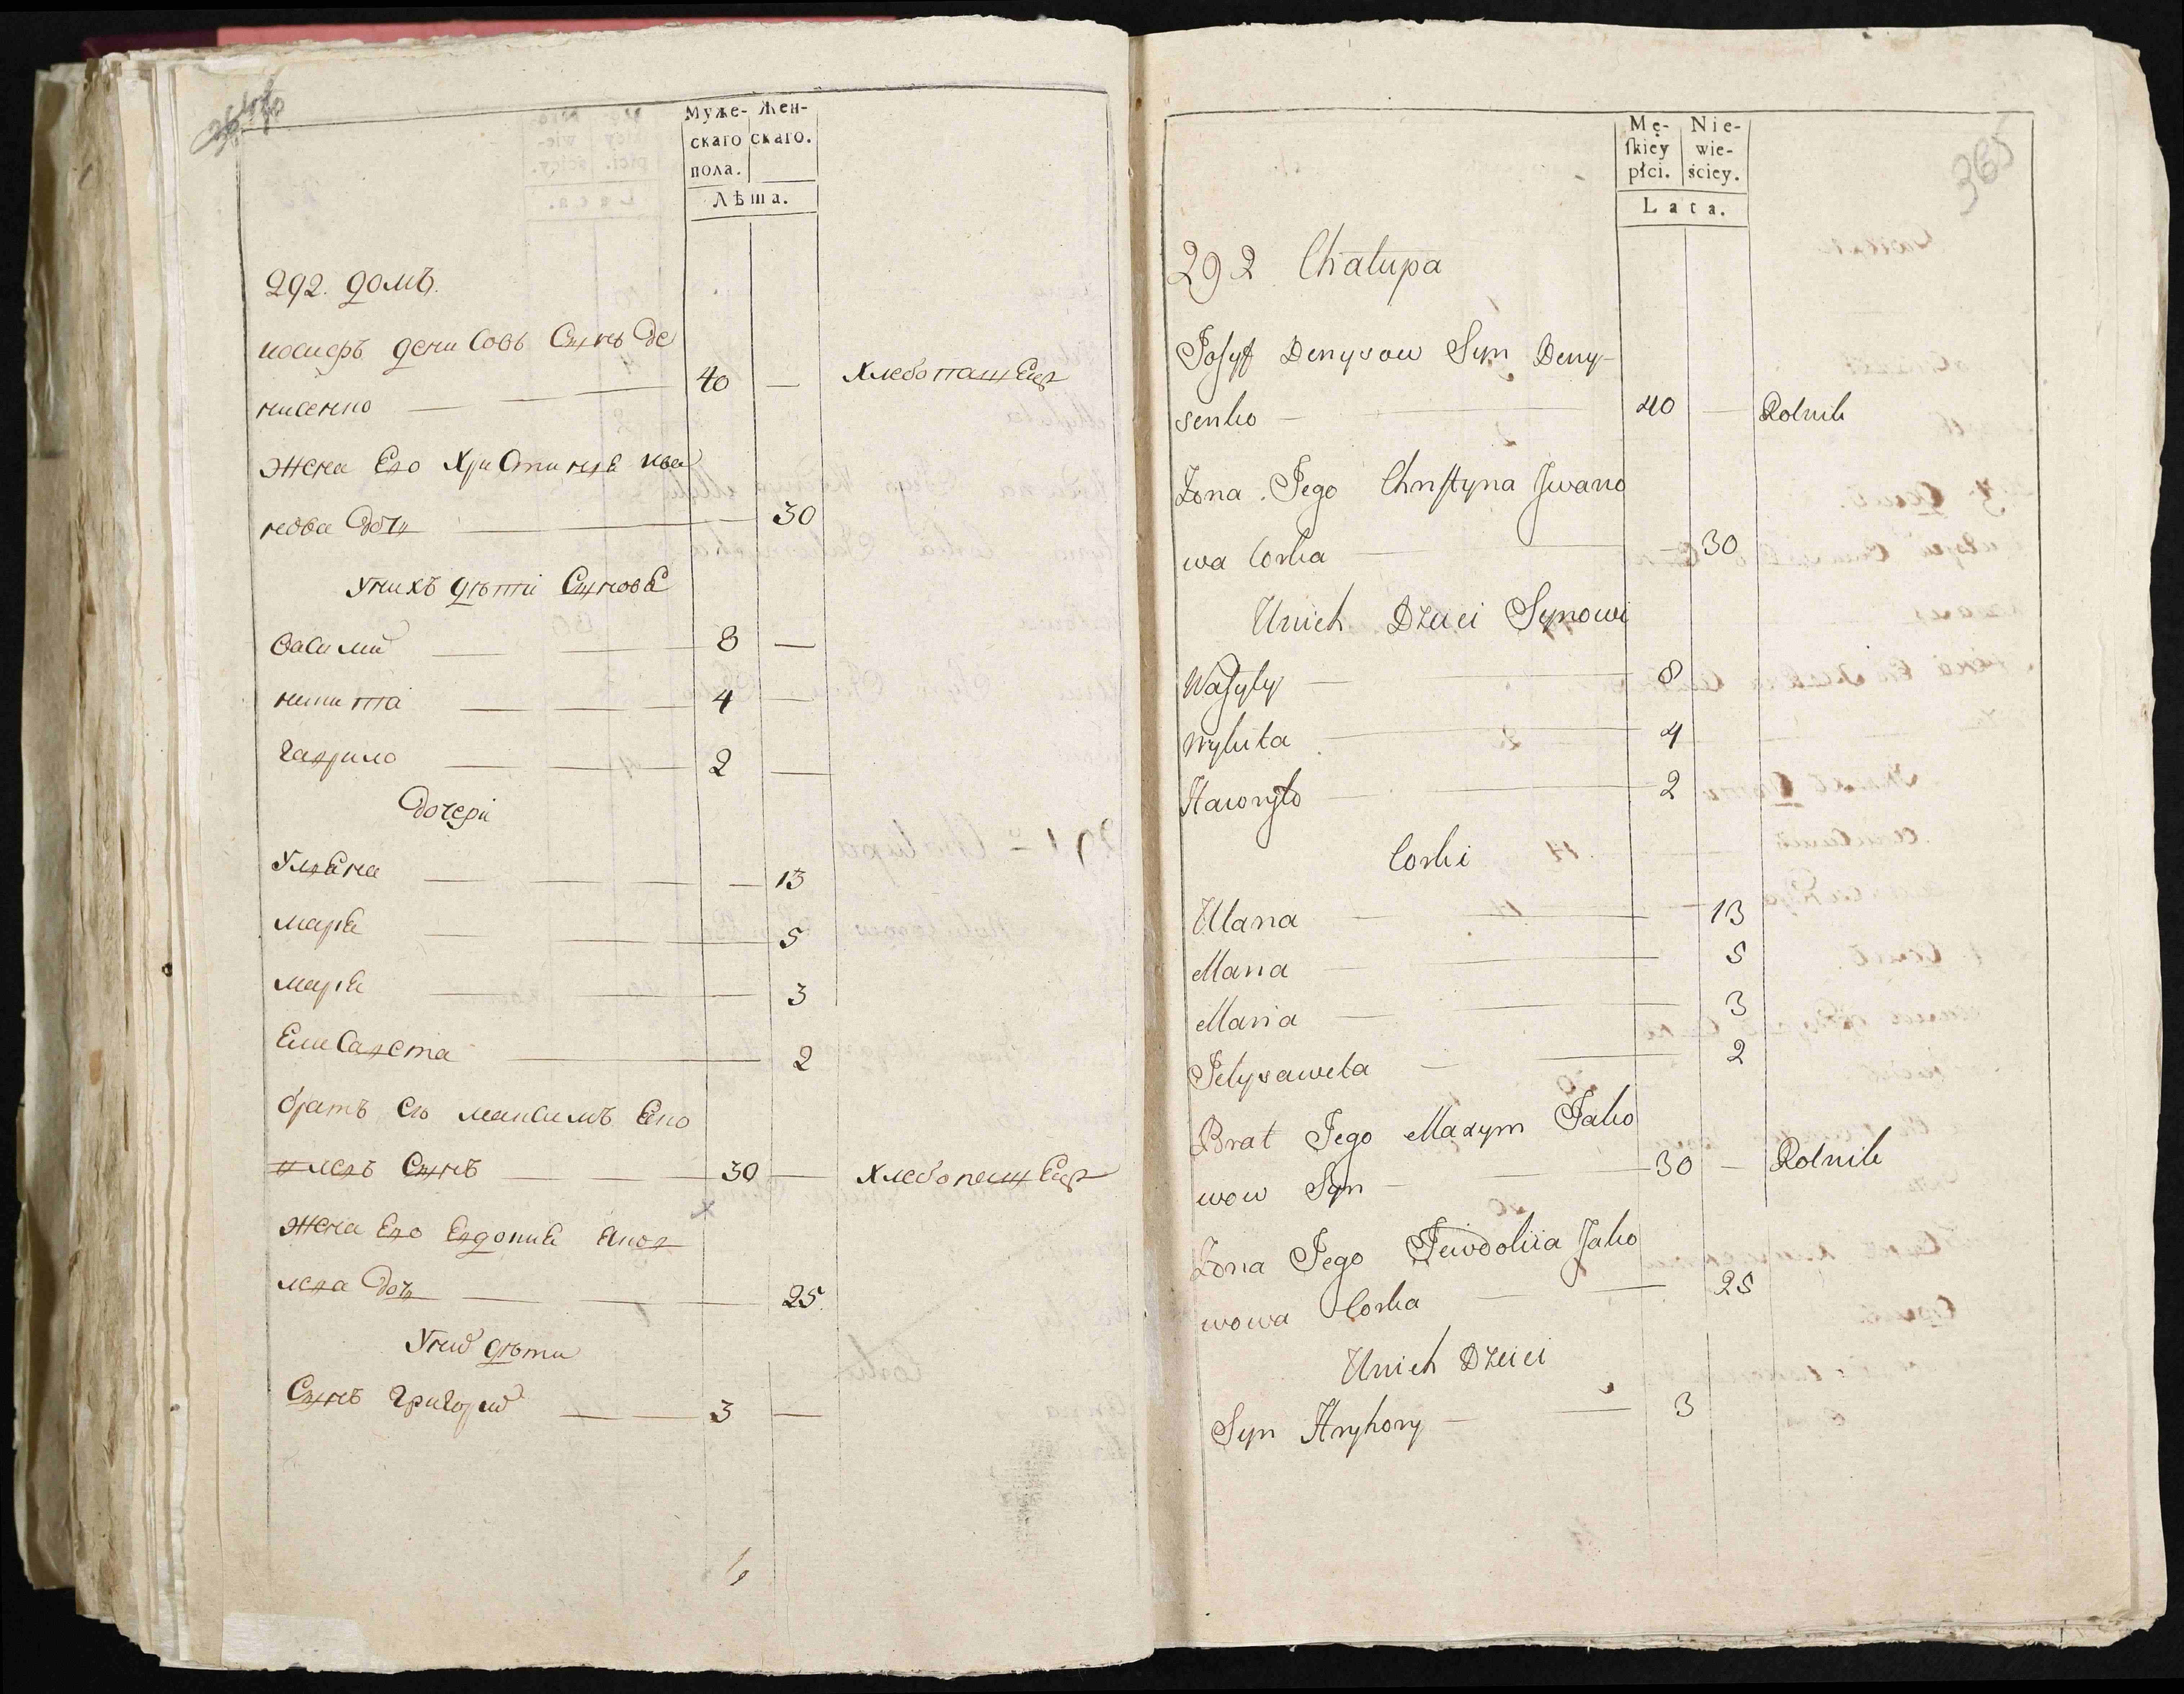 Муже- Жен-
скаго скаго.
пола.
Лѣта.
292. домъ.
иосифъ денисовъ Сынъ Де
нисенко — 40 — хлебопашецъ
жена Его Христиния ива
нова дочь — 30
У нихъ дѣти Сынове
василий — 8 —
никита — 4 —
гаврило — 2 —
дочери
Уляна — 13
мария — 5
мария — 3
Елисавета — 2
братъ его максимъ Яко
влевъ Сынъ — 30 — хлебопашецъ
жена Его Евдокия Яков
лева дочь — 25
У них дѣти
Сынъ григорий — 3 —
365
Mę- Nie-
ſkiey wie-
płci. ściey.
Lata.
292 Chałupa
Josyff Denysow Syn Deny-
senko — 40 — Rolnik
Zona Jego Chrystyna Jwano
wa Corka — 30
Unich Dzieci Synowi
Wasyly — 8
Nykita — 4
Hawryło — 2
Corki
Ulana — 13
Maria — 5
Maria — 3
Jelysaweta — 2
Brat Jego Maxym Jako
wow Syn — 30 — Rolnik
Zona Jego Jewdokiia Jako
wowa Corka — 25
Unich Dzieci
Syn Hryhory — 3